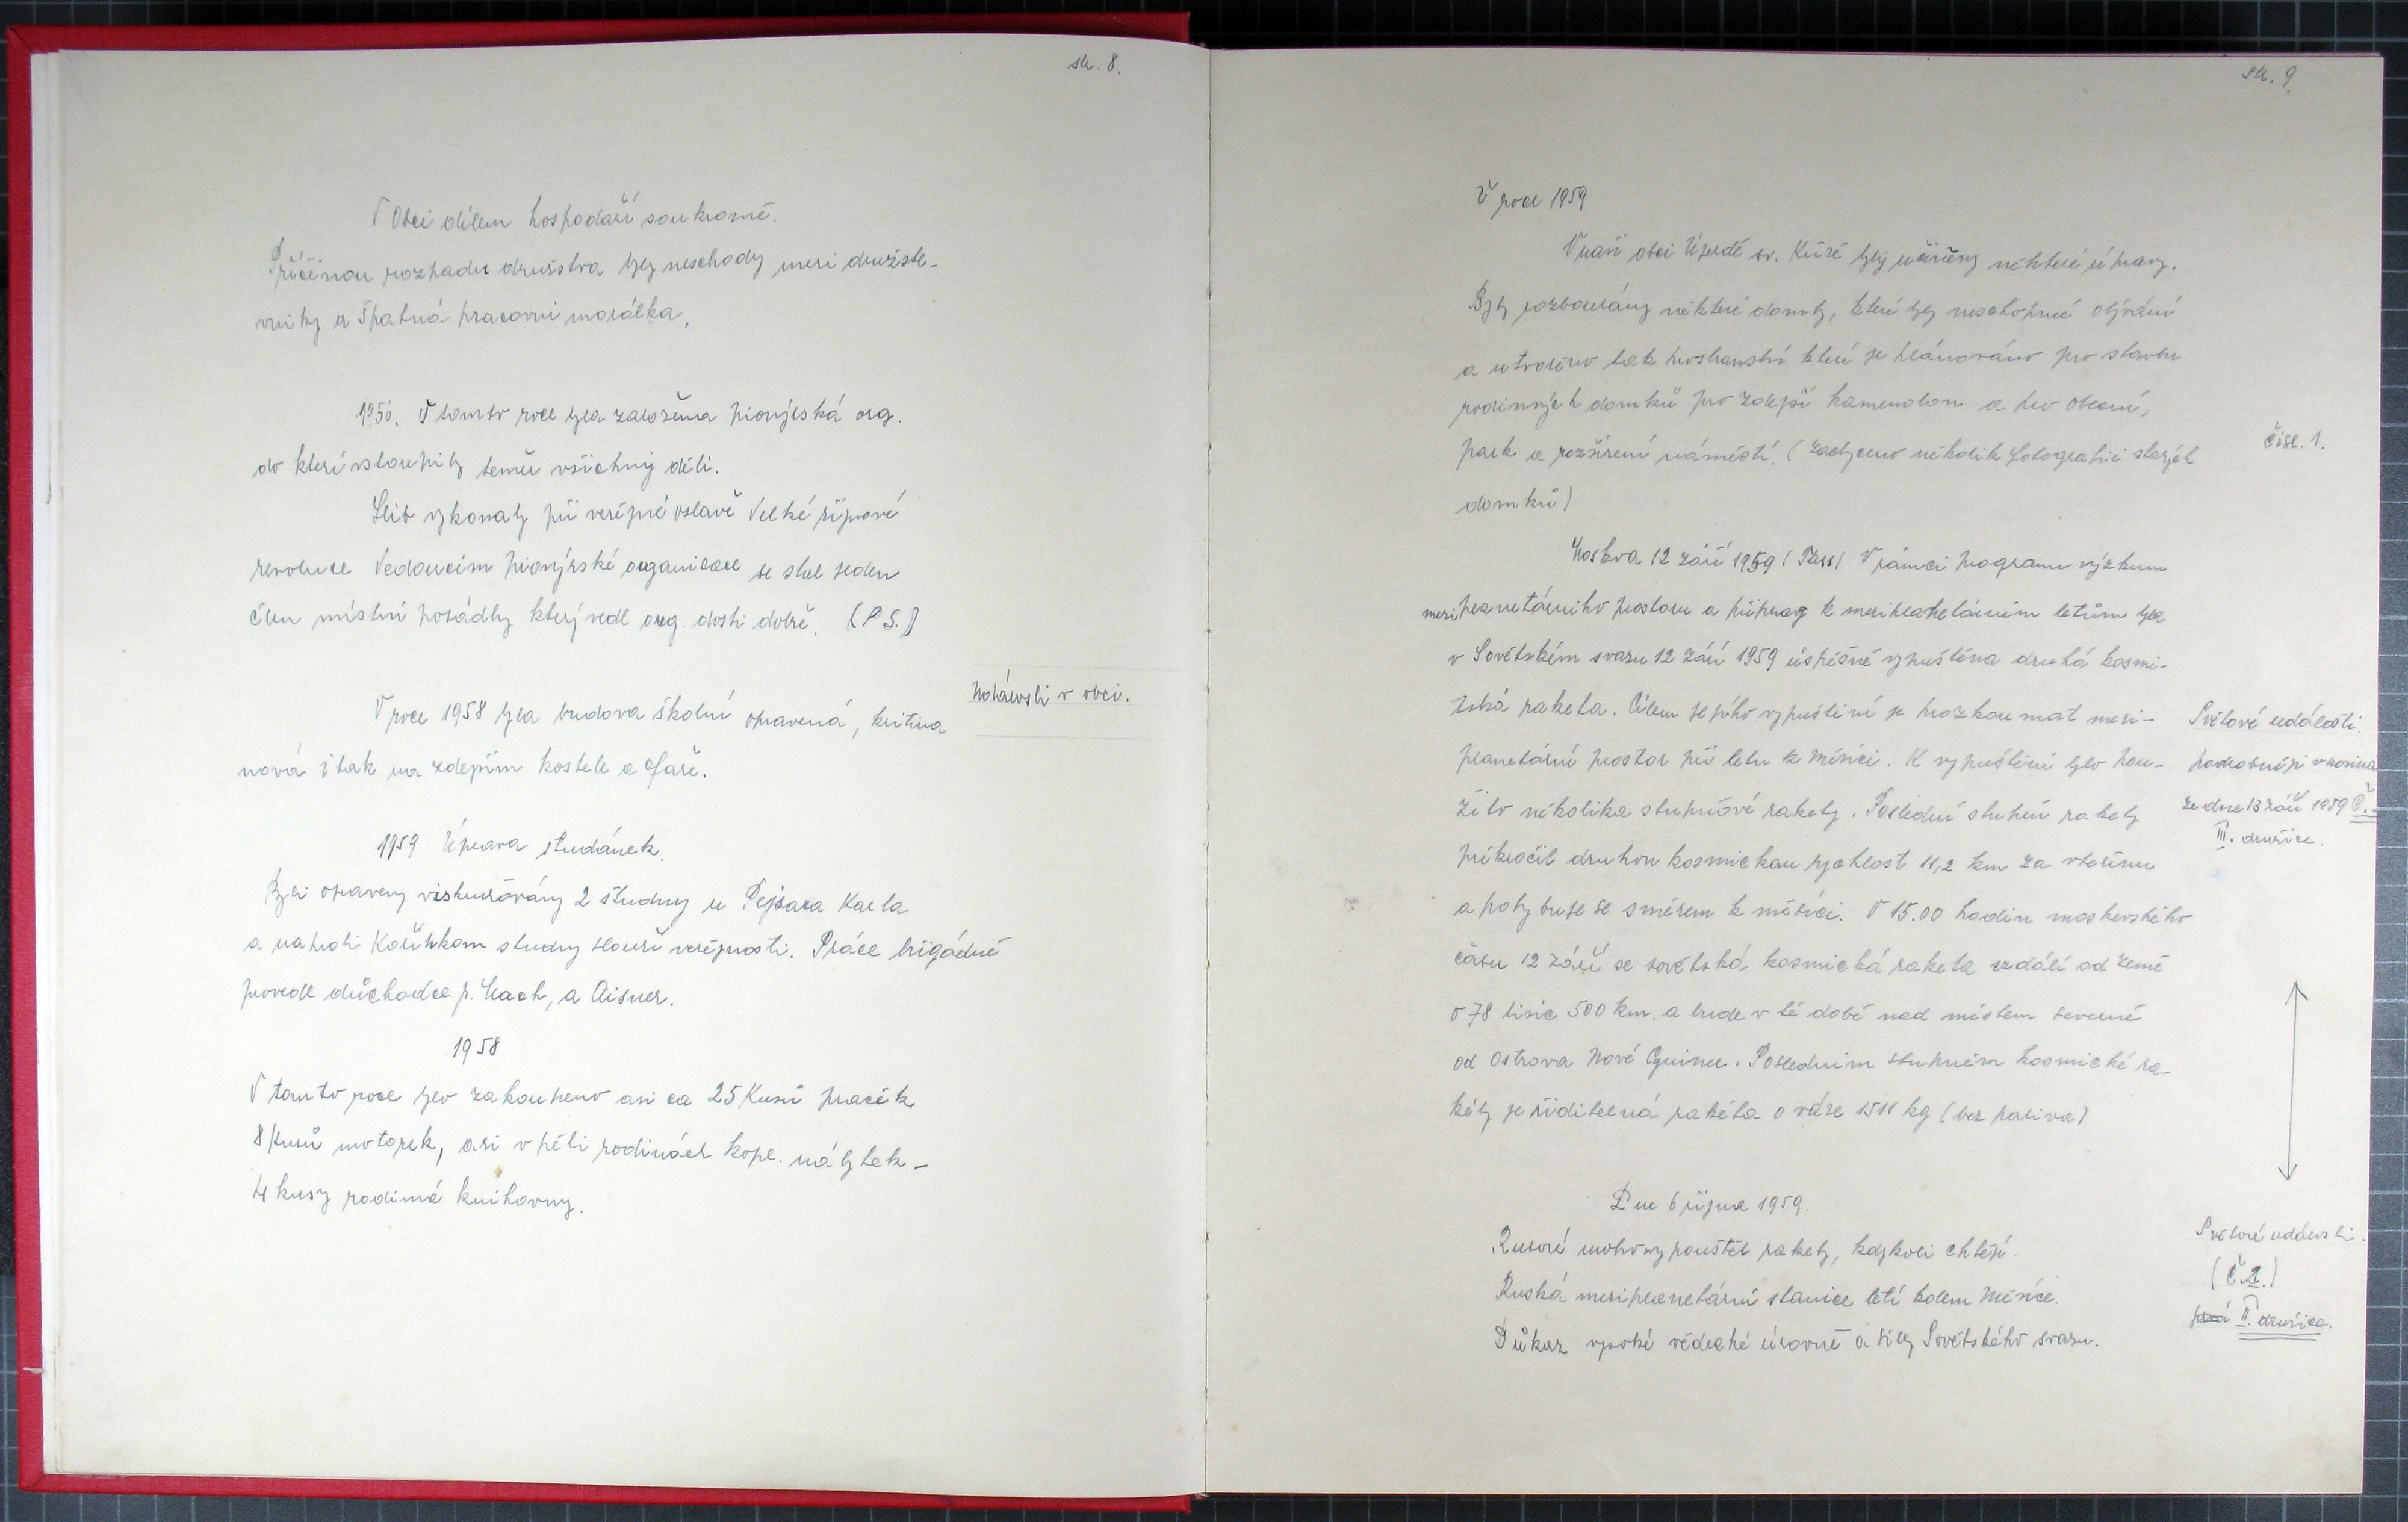 str. 8.
V Obci dílem hospodaří soukromě.
Příčinou rozpadu družstva byly neschody mezi družste-
vníky a špatná pracovní morálka.
V tomto roce byla založena pionýrská org.
do které vstoupily téměř všichny děti.
Slib vykonaly při veřejné oslavě Velké říjnové
revoluce Vedoucím pionýrské organizace se stal jeden
člen místní posádky který vedl org. dosti dobře. (P S.)
V roce 1958 byla budova školní opravená, kritina
nová i tak na zdejším kostele a faře.
v obci.
1959 Úprava studánek.
Byli opraveny 2 studny u Pejsara Karla
a naproti studny slouží veřejnosti. Práce brigádně
provedl důchodce p. Mach, a Aisner.
1958
V tomto roce bylo zakoupeno asi ca 25 Kusů praček
8 Kusů motorek, asi v pěti rodinách kopl. nábytek -
kusy rodiné knihovny.
str. 9.
V roce 1959
V naší obci Úterdě sv. Kúře byly učiněny některé úpravy.
Byly rozbourány některé domky, které byly neschopné obývání
a utvořeno tak prostranství které je plánováno pro stavbu
rodinných domků pro zdejší kamenolom a pro obecní,
park a rozšíření náměstí. (Zachyceno několik fotografií starých
domků)
čísl. 1.
Moskva 12 září 1959 (Tass) V rámci programu výzkum
meziplanetárního prostoru a přípravy k meziplanetárním letům byla
v Sovětském svazu 12 září 1959 úspěšně vypuštěna druhá kosmi-
cká raketa. Cílem jejího vypuštění je prozkoumat mezi-
planetární prostor při letu k Měsíci. K vypuštění bylo pou-
žito několika stupňové rakety. Poslední stupeň rakety
překročil druhou kosmickou rychlost 11,2 km za vteřinu
a pohybuje se směrem k měsíci. V 15.00 hodin moskevského
času 12 září se sovětská kosmická raketa vzdálí od země
o 78 tisíc 500 km. a bude v té době nad místem severně
od Ostrova Nové Guinee. Posledním stupněm kosmické ra-
kéty je řiditelná rakéta o váze 1511 kg (bez paliva)
Světové události
podrobněji v novinách
ze dne 13 září 1959 Č.
III. družice.
Dne 6 října 1959.
Rusové mohou vypouštět rakety, kdykoli chtějí.
Ruská meziplanetární stanice letí kolem Měsíce.
Důkaz vysoké vědecké úrovně a síly Sovětského svazu.
Světové události.
(Č 2.)
II. družice.